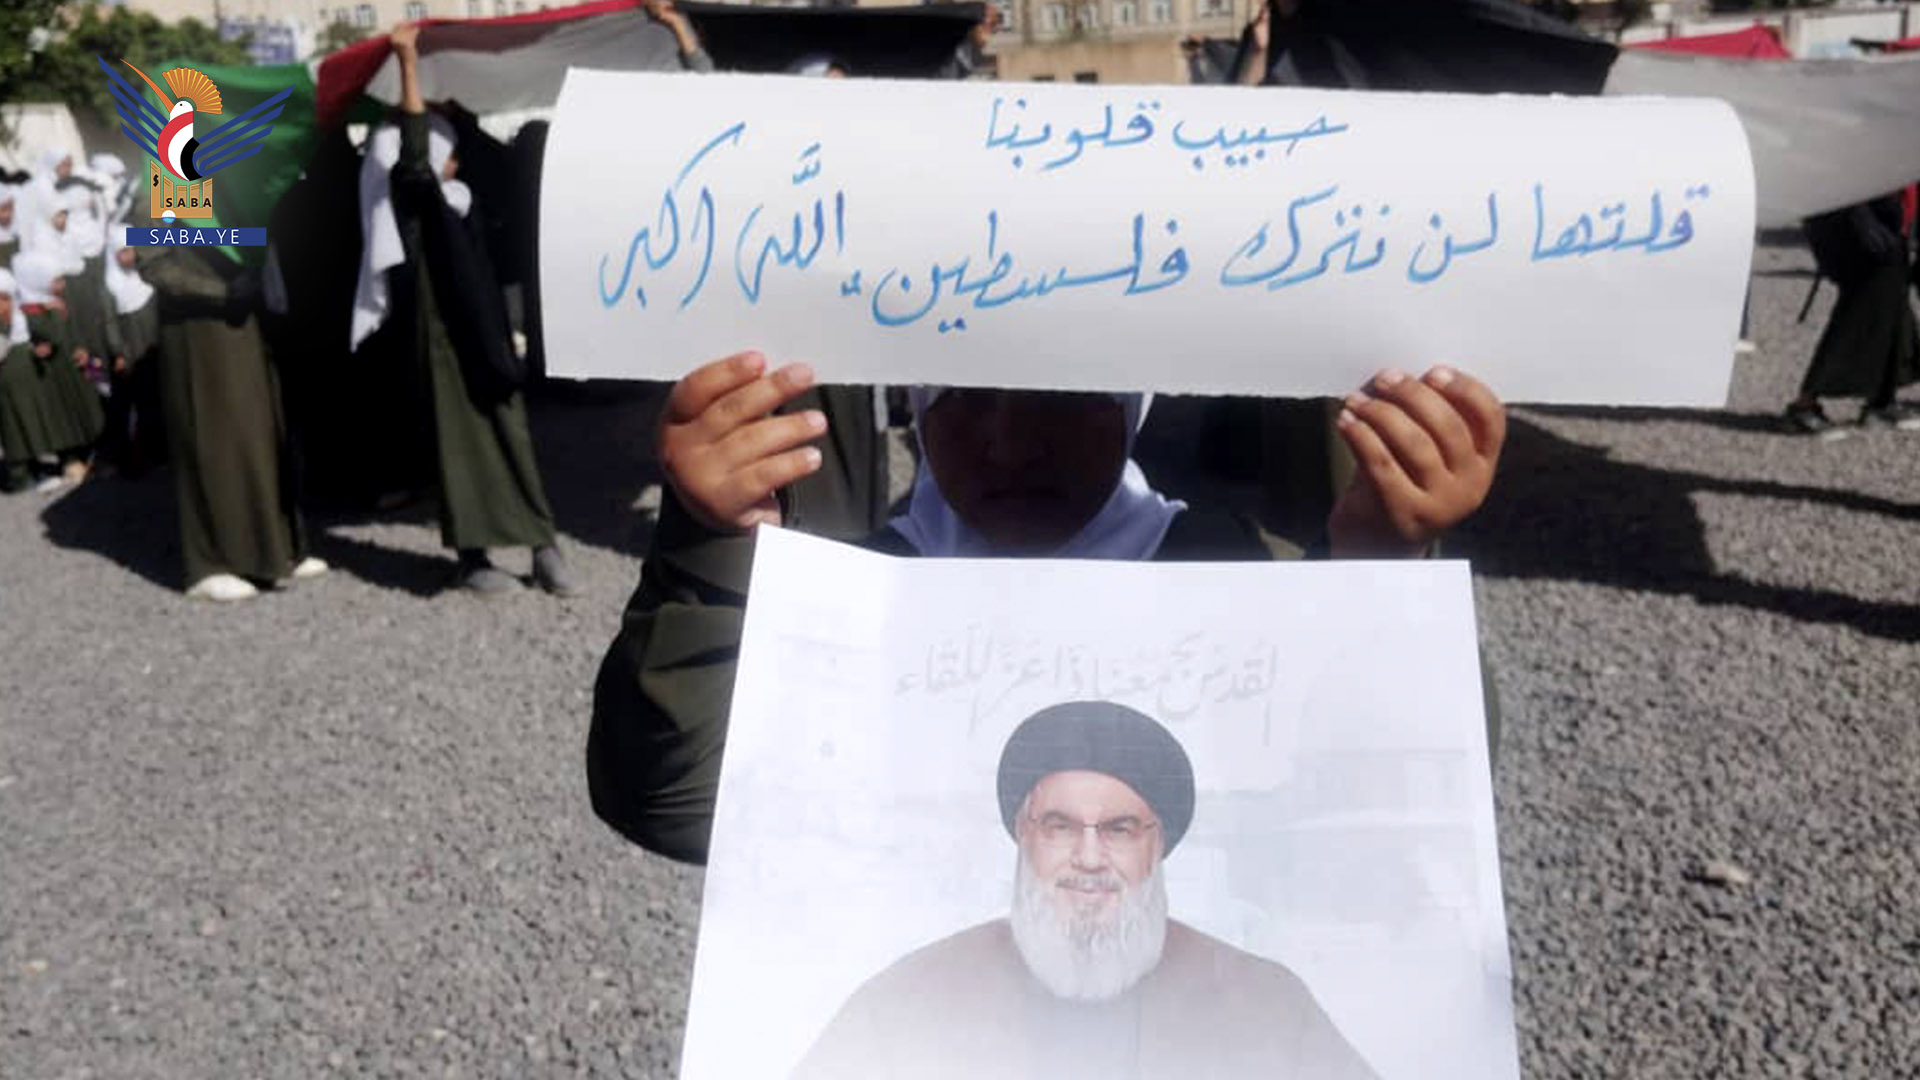 SABA
SABA.YE
حبيب قلوبنا
قلتها لن نترك فلسطين. الله اكبر
القدس تجمعنا إذا عز اللقاء